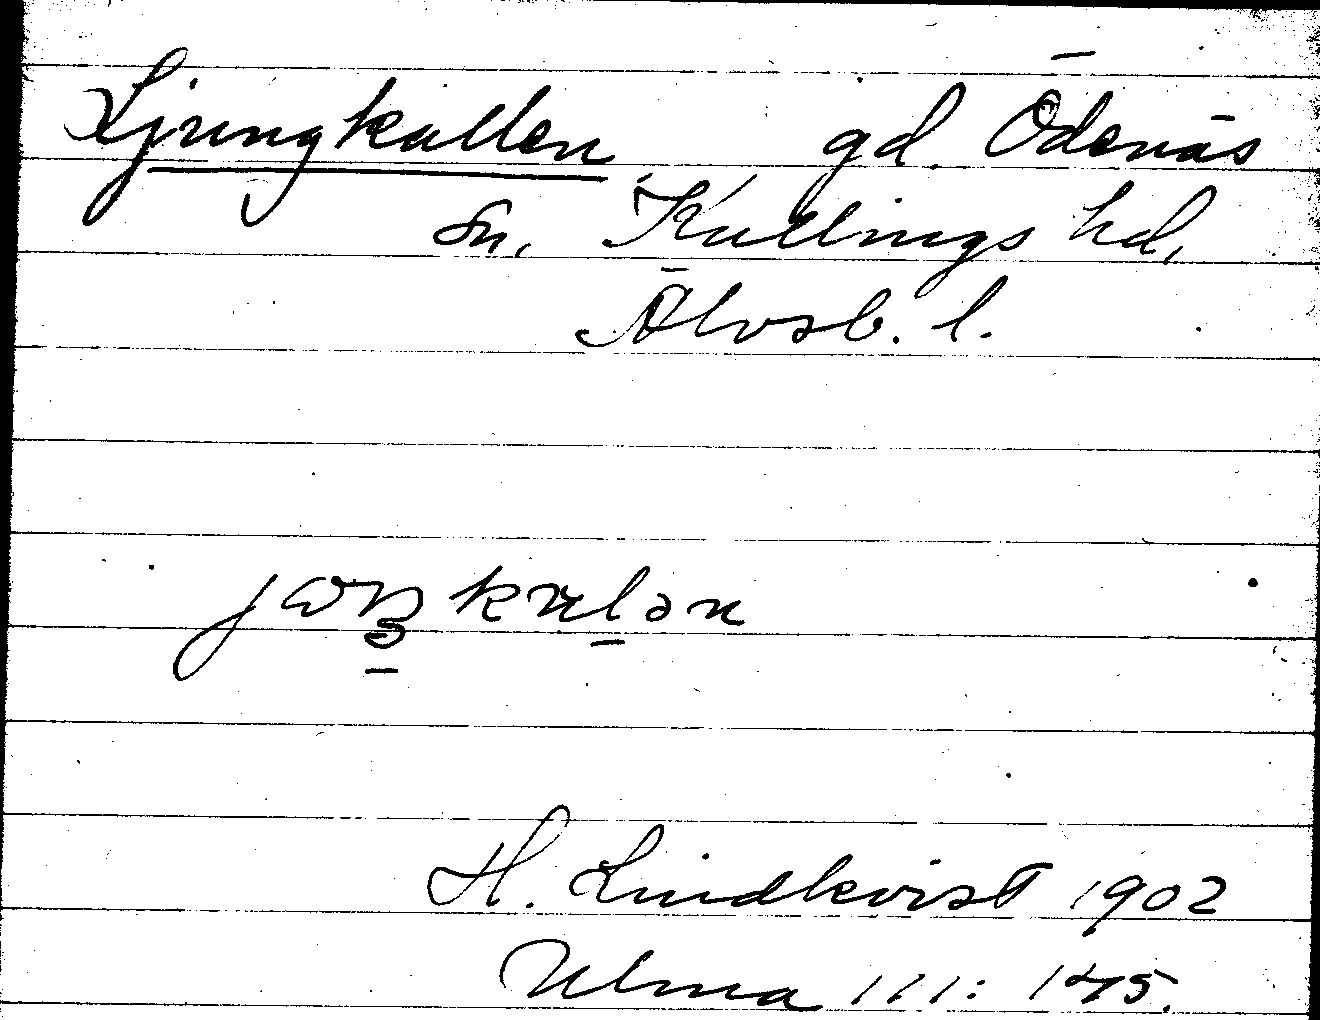 Ljungkullen gd. Ödenäs
sn, Kullings hd,
Älvsb. l.
H. Lindkvist 1902
Ulma 111: 175.